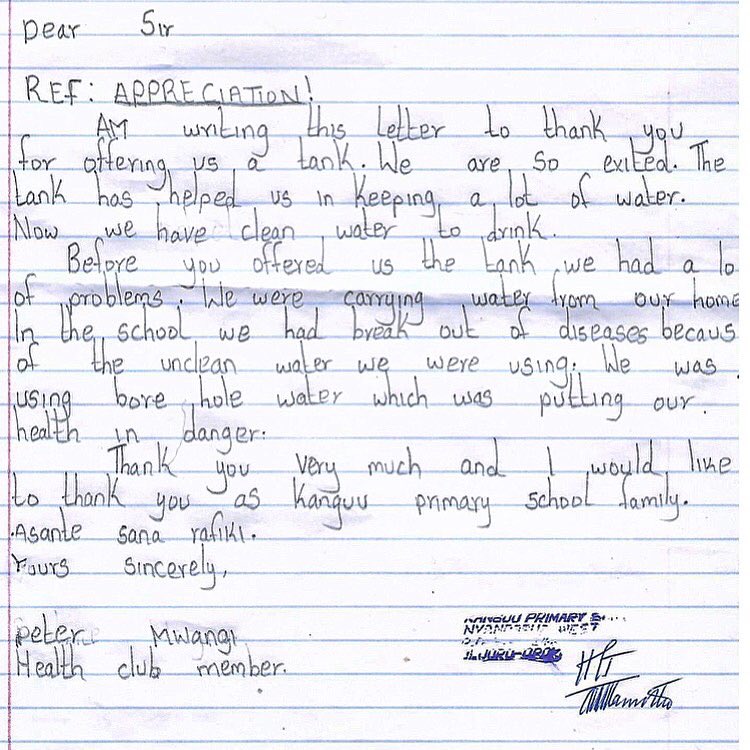 Dear Sir
REF: APPRECIATION!
AM writing this letter to thank you
for offering us a tank. We are so exited. The
tank has helped us in keeping a lot of water.
Now we have clean water to drink.
Before you offered us the tank we had a lo
of problems. We were carrying water from our home
In the school we had break out of diseases becaus
of the unclean water we were using. We was
using bore hole water which was putting our
health in danger.
Thank you very much and I would like
to thank you as Kanguu primary school family.
Asante sana rafiki.
Yours sincerely,
peter Mwangi
Health club member.
KANGUU PRIMARY
WEST